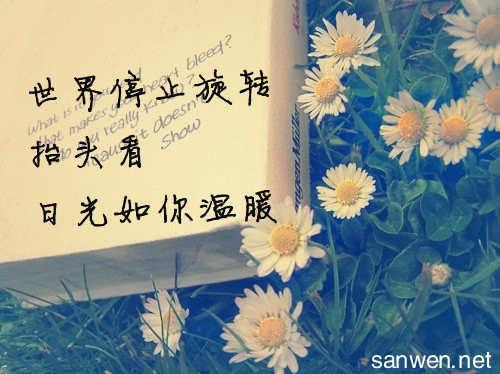 世界停止旋转
抬头看
日光如你温暖
What is it
that makes your heart bleed?
do you really know?
it doesn't
show
sanwen.net